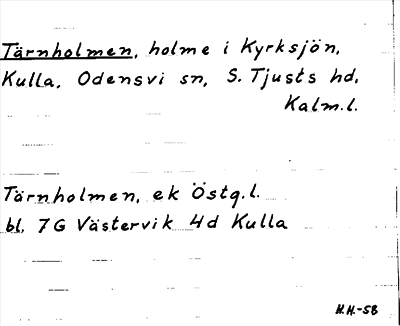 Tärnholmen, holme i Kyrksjön,
Kulla, Odensvi sn, S. Tjusts hd,
Kalm.l.
Tärnholmen, ek Östg.l.
bl. 7G Västervik 4d Kulla
H.H.-58